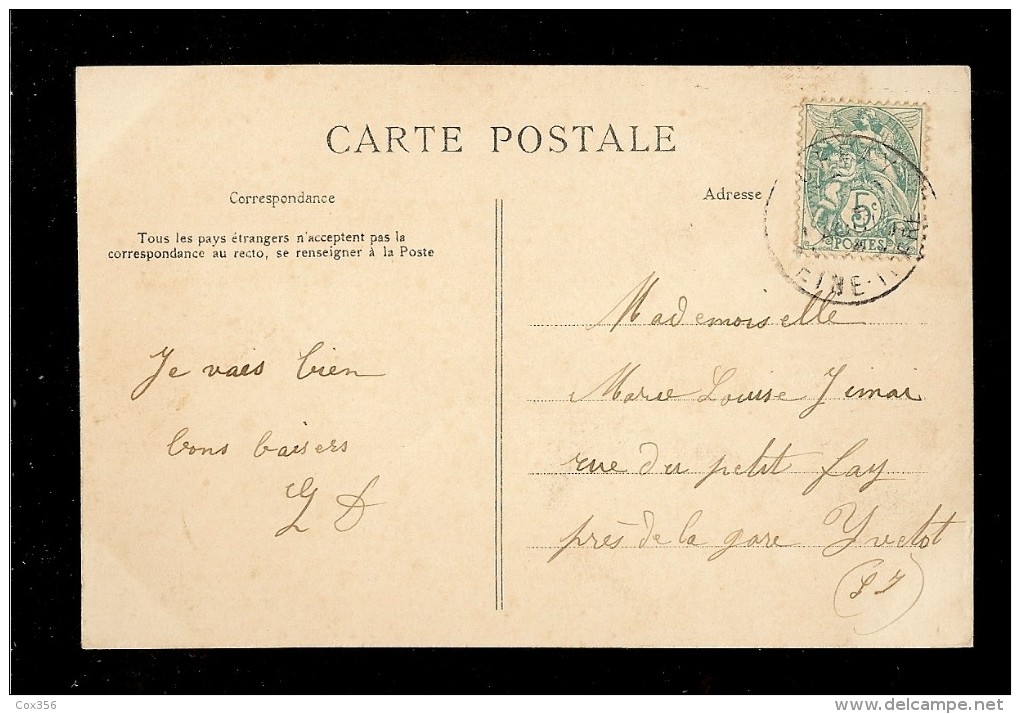 CARTE POSTALE
Correspondance
Tous les pays étrangers n'acceptent pas la
correspondance au recto, se renseigner à la Poste
Je vais bien
bons baisers
Adresse
5c
POSTES
Mademoiselle
Marie Louise
rue du petit fay
près de la gare Yvetot
(S I)
Cox356
www.delcampe.net